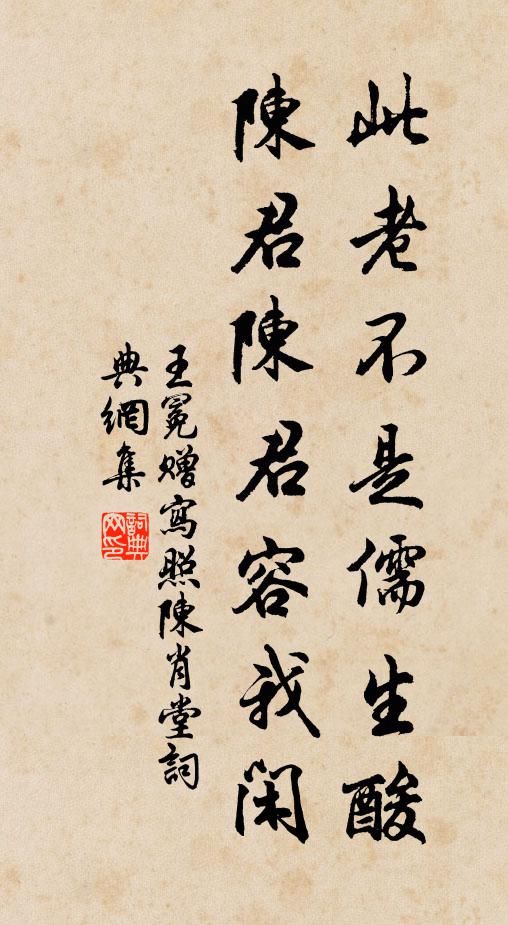 此老不是儒生酸
陳君陳君容我閑
王冕贈寫照陳肖堂詞
典網集
詞典
网印